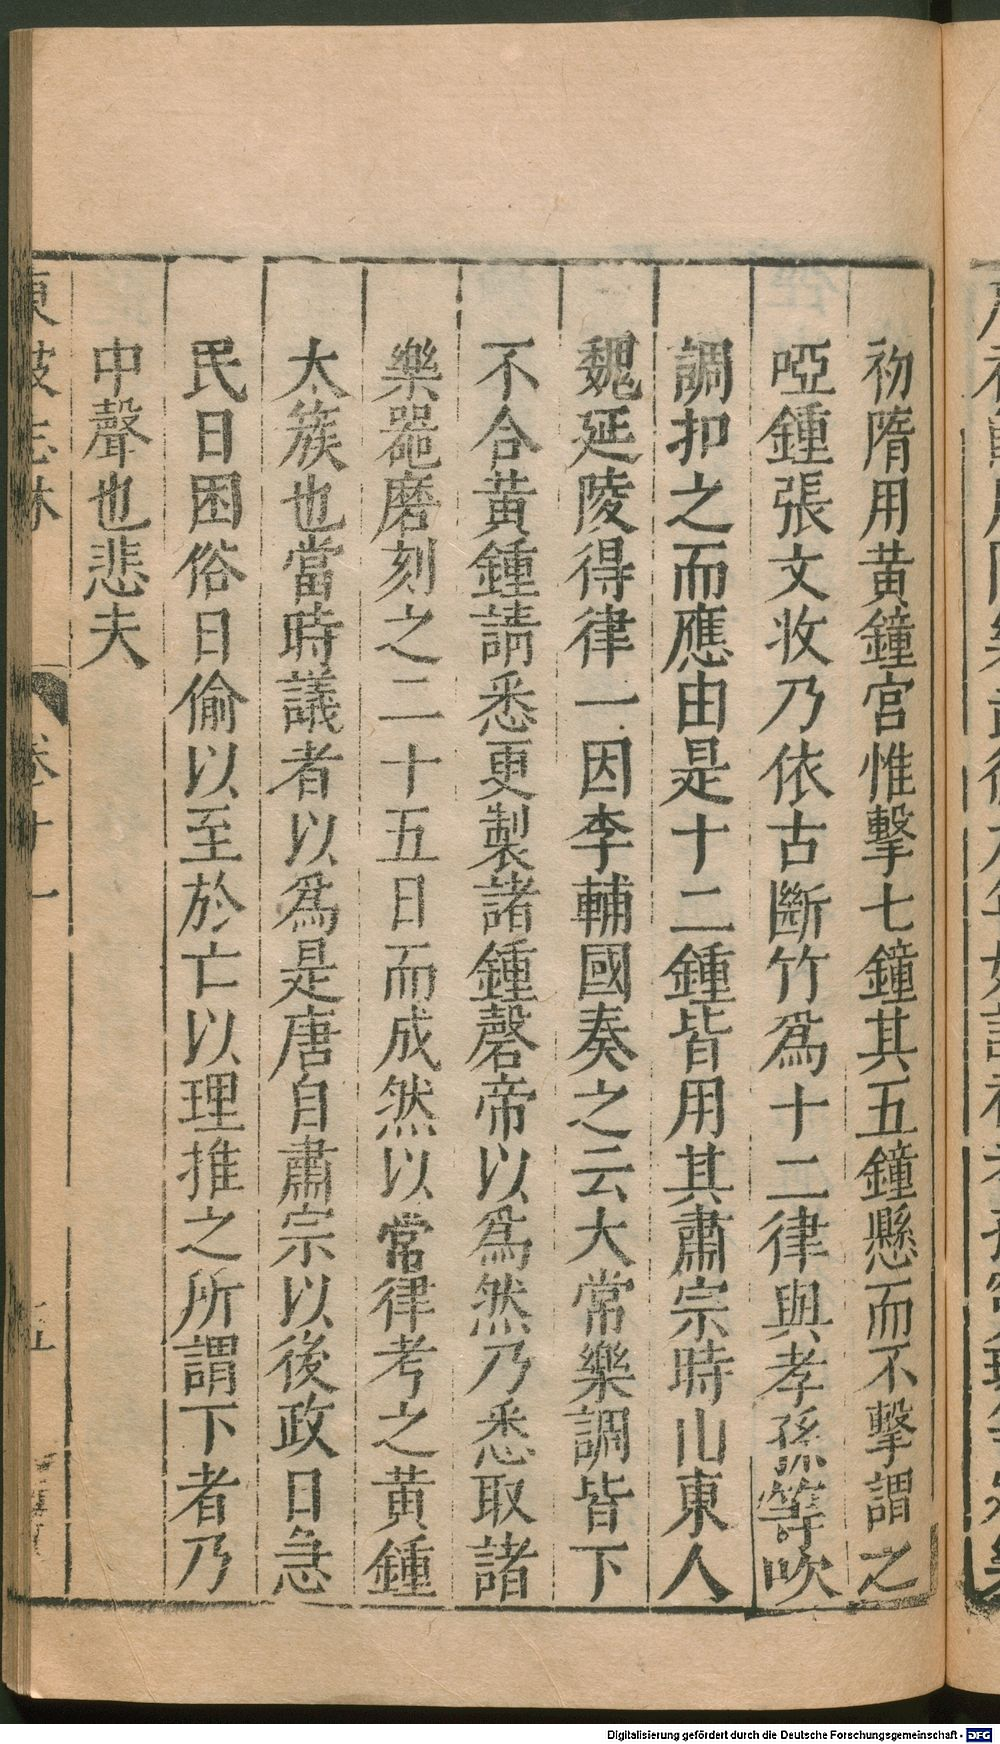 初隋用黄鐘宫惟擊七鐘其五鐘懸而不擊謂之
啞鍾張文收乃依古斷竹爲十二律與孝孫等吹
調扣之而應由是十二鍾皆用其肅宗時山東人
魏延陵得律一因李輔國奏之云大常樂調皆下
不合黄鍾請悉更製諸鍾磬帝以爲然乃悉取諸
樂噐磨刻之二十五日而成然以常律考之黄鍾
太簇也當時議者以爲是唐自肅宗以後政日急
民日困俗日偷以至於亡以理推之所謂下者乃
中聲也悲夫
東坡志林 卷十一 五
Digitalisierung gefördert durch die Deutsche Forschungsgemeinschaft - DFG